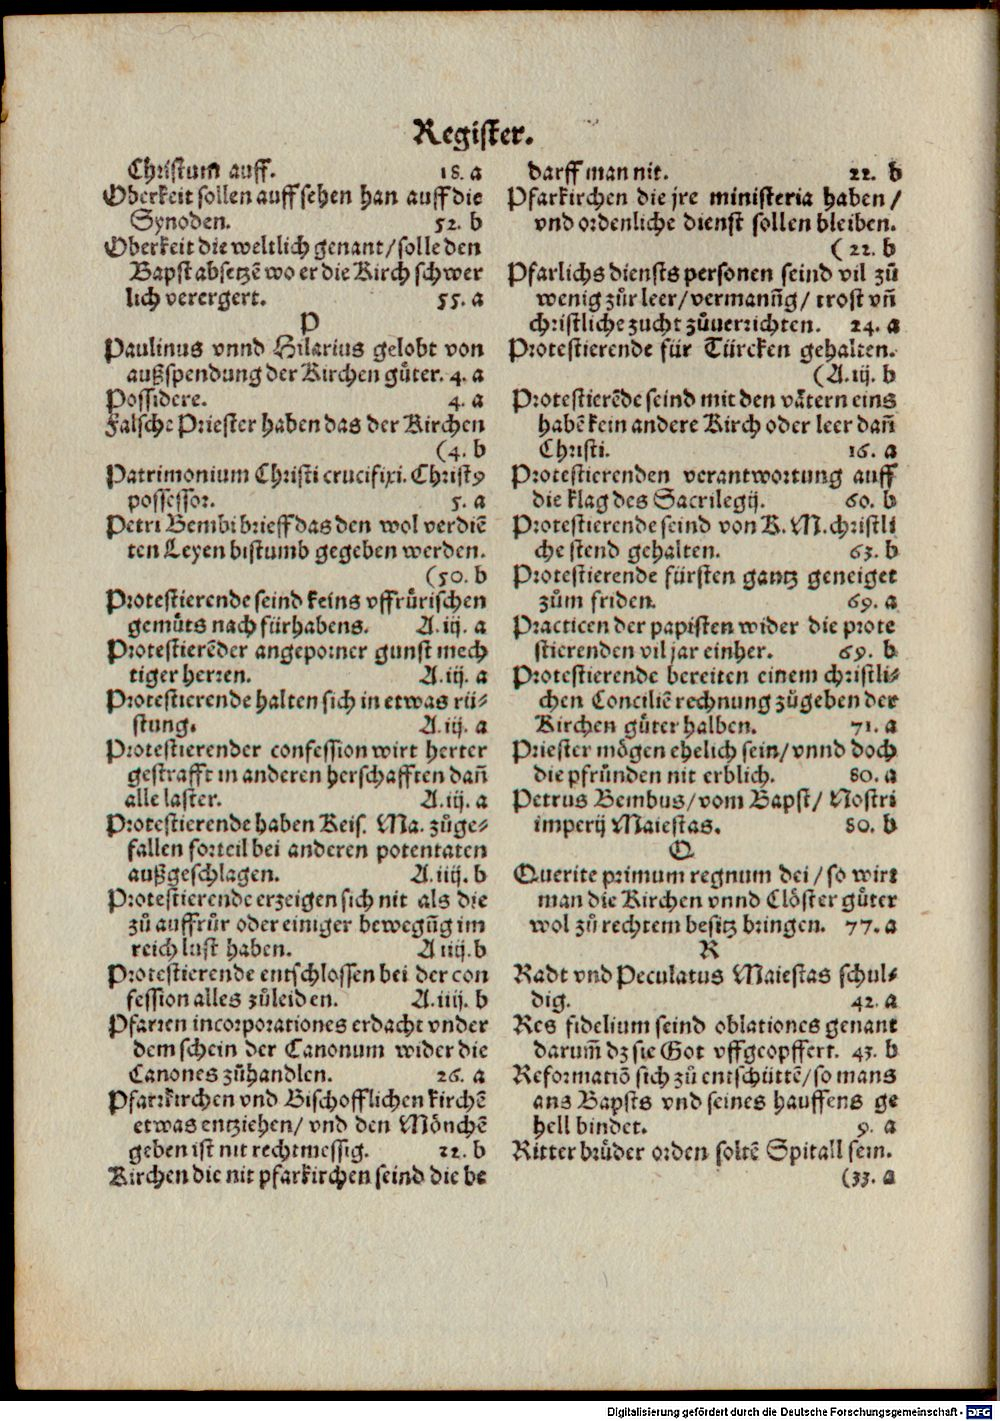 Register.
Christum auff. 18. a
Oberkeit sollen auff sehen han auff die
Synoden. 52. b
Oberkeit die weltlich genant/ solle den
Bapst absetzē wo er die Kirch schwer
lich verergert. 55. a
P
Paulinus vnnd Hilarius gelobt von
außspendung der Kirchen guͤter. 4. a
Possidere. 4. a
Falsche Priester haben das der Kirchen
(4. b
Patrimonium Christi crucifixi. Christꝰ
possessor. 5. a
Petri Bembi brieff das den wol verdiē
ten Leyen bistumb gegeben werden.
(50. b
Protestierende seind keins vffruͤrischen
gemuͤts nach fürhabens. A. iij. a
Protestierēder angeporner gunst mech
tiger herren. A. iij. a
Protestierende halten sich in etwas rü⸗
stung. A. iij. a
Protestierender confession wirt herter
gestrafft in anderen herschafften dañ
alle laster. A. iij. a
Protestierende haben Keis. Ma. zůge⸗
fallen forteil bei anderen potentaten
außgeschlagen. A. iiij. b
Protestierende erzeigen sich nit als die
zů auffrůr oder einiger bewegūg im
reich lust haben. A iiij. b
Protestierende entschlossen bei der con
fession alles zůleiden. A. iiij. b
Pfarren incorporationes erdacht vnder
dem schein der Canonum wider die
Canones zůhandlen. 26. a
Pfarrkirchen vnd Bischofflichen kirchē
etwas entziehen/ vnd den Mönchē
geben ist nit rechtmessig. 22. b
Kirchen die nit pfarkirchen seind die be
darff man nit. 22. b
Pfarkirchen die jre ministeria haben/
vnd ordenliche dienst sollen bleiben.
(22. b
Pfarlichs diensts personen seind vil zů
wenig zůr leer/ vermanūg/ trost vñ
christliche zucht zůuerrichten. 24. a
Protestierende für Türcken gehalten.
(A. iij. b
Protestierēde seind mit den vätern eins
habē kein andere Kirch oder leer dañ
Christi. 16. a
Protestierenden verantwortung auff
die klag des Sacrilegij. 60. b
Protestierende seind von K. M. christli
che stend gehalten. 63. b
Protestierende fürsten gantz geneiget
zům friden. 69. a
Practicen der papisten wider die prote
stierenden vil jar einher. 69. b
Protestierende bereiten einem christli⸗
chen Conciliē rechnung zůgeben der
Kirchen guͤter halben. 71. a
Priester mögen ehelich sein/ vnnd doch
die pfründen nit erblich. 80. a
Petrus Bembus/ vom Bapst/ Nostri
imperij Maiestas. 80. b
Q
Querite primum regnum dei/ so wirt
man die Kirchen vnnd Clöster guͤter
wol zů rechtem besitz bringen. 77. a
R
Radt vnd Peculatus Maiestas schul⸗
dig. 42. a
Res fidelium seind oblationes genant
darum̄ dz sie Got vffgeopffert. 43. b
Reformatiō sich zů entschüttē/ so mans
ans Bapsts vnd seines hauffens ge
hell bindet. 9. a
Ritter bruͤder orden soltē Spitall sein.
(33. a
Digitalisierung gefördert durch die Deutsche Forschungsgemeinschaft - DFG